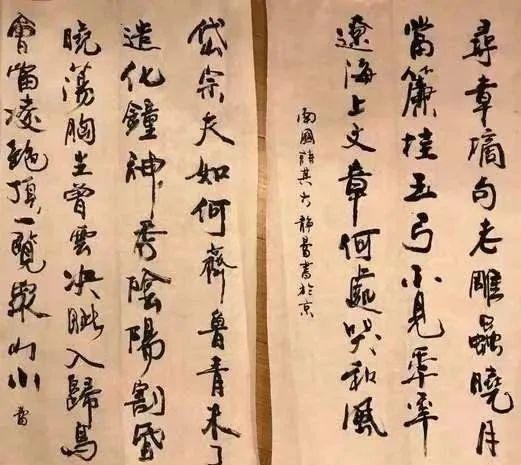 尋章摘句老雕蟲曉月
當簾挂玉弓不見年年
遼海上文章何處哭秋風
南園詩其六靜書於京
岱宗夫如何齊魯青未了
造化鐘神秀陰陽割昏
曉蕩胸生曾雲決眥入歸鳥
會當凌絕頂一覽眾山小